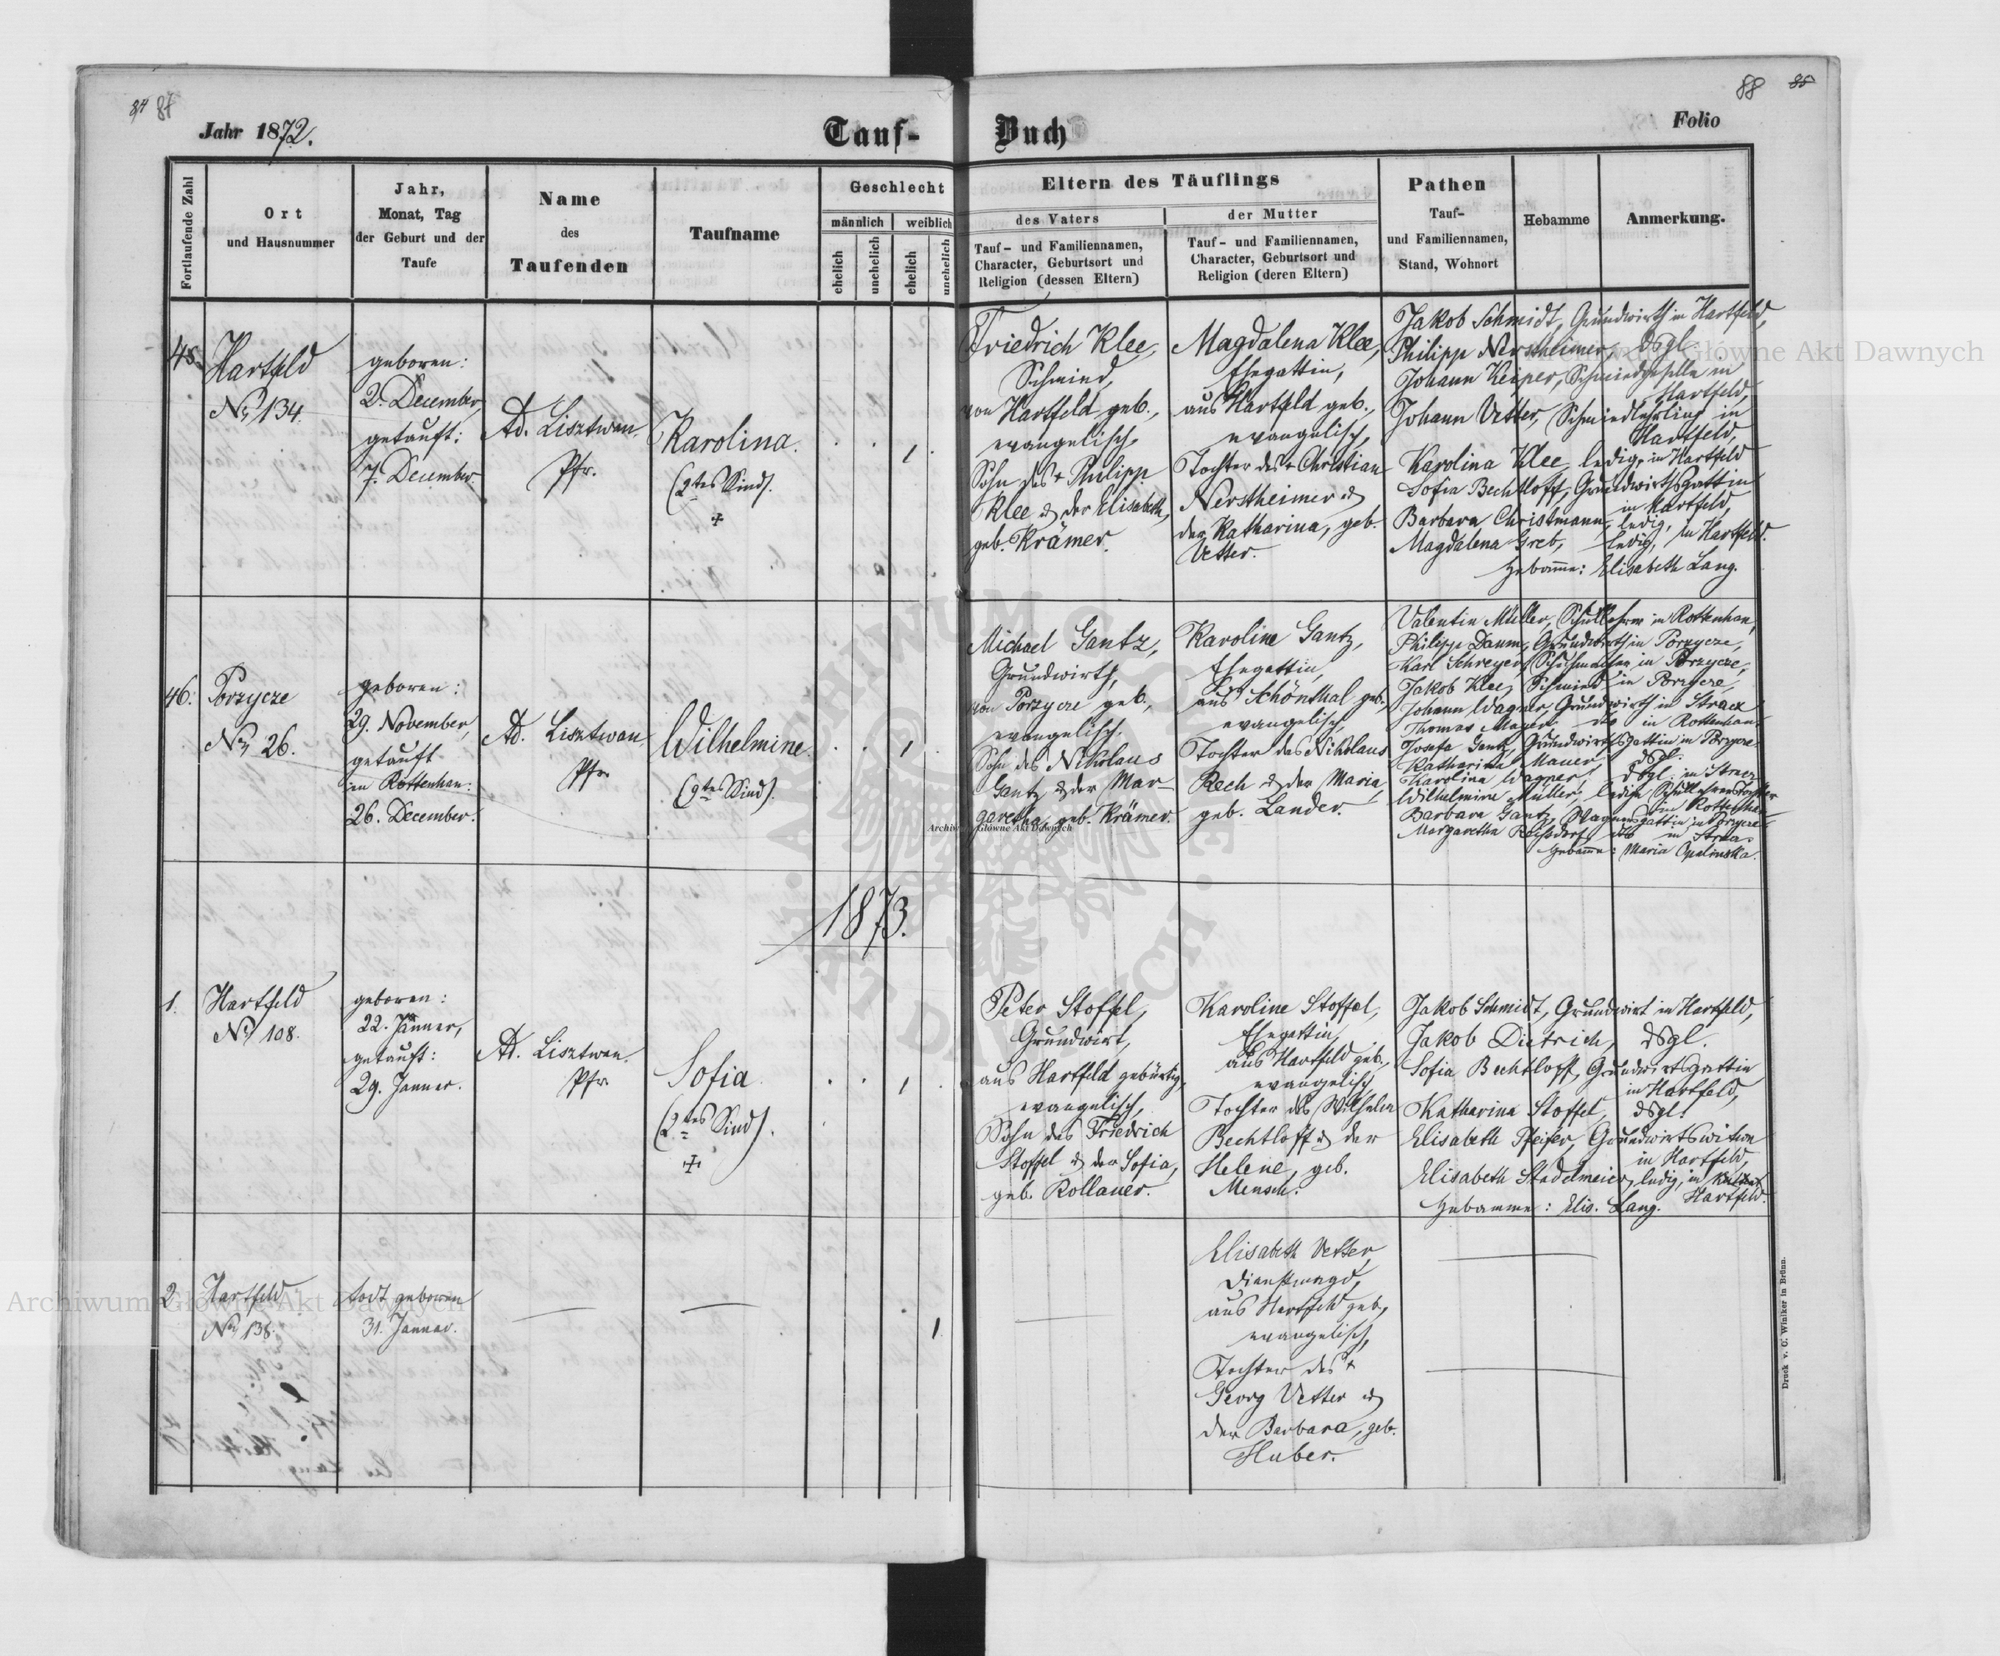 84 87
88 85
Jahr 1872.
Tauf- Buch
Folio
Fortlaufende Zahl
Ort
und Hausnummer
Jahr,
Monat, Tag
der Geburt und der
Taufe
Name
des
Taufenden
Taufname
Geschlecht
männlich
weiblich
ehelich
unehelich
ehelich
unehelich
Eltern des Täuflings
des Vaters
Tauf- und Familiennamen,
Character, Geburtsort und
Religion (dessen Eltern)
der Mutter
Tauf- und Familiennamen,
Character, Geburtsort und
Religion (deren Eltern)
Pathen
Tauf-
und Familiennamen,
Stand, Wohnort
Hebamme
Anmerkung.
45.
Hartfeld
No 134.
geboren:
2. December,
getauft:
7. December.
Ad. Lisztwan.
Pfr.
Karolina.
(2tes Kind).
+
1
Friedrich Klee,
Schmied,
von Hartfeld geb.,
evangelisch,
Sohn des + Philipp
Klee & der Elisabeth,
geb. Krämer.
Magdalena Klee,
Ehegattin,
aus Hartfeld geb.,
evangelisch,
Tochter des + Christian
Nerstheimer &
der Katharina, geb.
Vetter.
Jakob Schmidt, Grundwirth in Hartfeld,
Philipp Nerstheimer, dsgl.
Johann Keiper, Schmiedgeselle in
Hartfeld,
Johann Vetter, Schmiedlehrling in
Hartfeld,
Karolina Klee, ledig, in Hartfeld
Sofia Bechtloff, Grundwirthsgattin
in Hartfeld,
Barbara Christmann, ledig,
Magdalena Greb, ledig, in Hartfeld.
Hebamme: Elisabeth Lang.
46.
Porzycze
No 26.
geboren:
29. November,
getauft
in Rottenhan:
26. December.
Ad. Lisztwan
Pfr.
Wilhelmine
(9tes Kind).
1
Michael Gantz,
Grundwirth,
von Porzycze geb.,
evangelisch.
Sohn des Nikolaus
Gantz & der Mar-
garetha, geb. Krämer.
Karoline Gantz,
Ehegattin,
aus Schönthal geb.,
evangelisch.
Tochter des Nikolaus
Rech & der Maria,
geb. Lander.
Valentin Müller, Schullehrer in Rottenhan,
Philipp Daum, Grundwirth in Porzycze,
Karl Schreyer, Schuhmacher in Porzycze,
Jakob Klee, Schmied in Porzycze,
Johann Wagner, Grundwirth in Stracz
Thomas Mayer dto in Rottenhan
Josefa Gantz, Grundwirthsgattin in Porzycze
Katharina Mauer, dsgl.
Karolina Wagner, dsgl. in Stracz
Wilhelmine Müller, ledige Schullehrerstochter
in Rottenhan
Barbara Gantz, Wagnersgattin in Porzycze
Margaretha dto in Stracz
Hebamme: Maria Opalinska.
1873.
1.
Hartfeld
No 108.
geboren:
22. Jänner,
getauft:
29. Jänner.
Ad. Lisztwan.
Pfr.
Sofia
(2tes Kind).
+
1
Peter Stoffel,
Grundwirt,
aus Hartfeld gebürtig,
evangelisch,
Sohn des Friedrich
Stoffel & der Sofia,
geb. Rollauer.
Karoline Stoffel,
Ehegattin,
aus Hartfeld geb.,
evangelisch,
Tochter des Wilhelm
Bechtloff & der
Helene, geb.
Mensch.
Jakob Schmidt, Grundwirt in Hartfeld,
Jakob Dietrich, dsgl.
Sofia Bechtloff, Grundwirtsgattin
in Hartfeld,
Katharina Stoffel, dsgl.
Elisabeth Pfeifer, Grundwirtswitwe
in Hartfeld,
Elisabeth Stadelmeier, ledig, in
Hartfeld.
Hebamme: Elis. Lang.
2.
Hartfeld
No 138.
todt geboren
31. Jänner.
1.
Elisabeth Vetter,
Dienstmagd,
aus Hartfeld geb.,
evangelisch,
Tochter des +
Georg Vetter &
der Barbara, geb.
Huber.
Druck v. C. Winiker in Brünn.
Archiwum Główne Akt Dawnych
Archiwum Główne Akt Dawnych
Archiwum Główne Akt Dawnych
ARCHIWUM GŁÓWNE AKT DAWNYCH